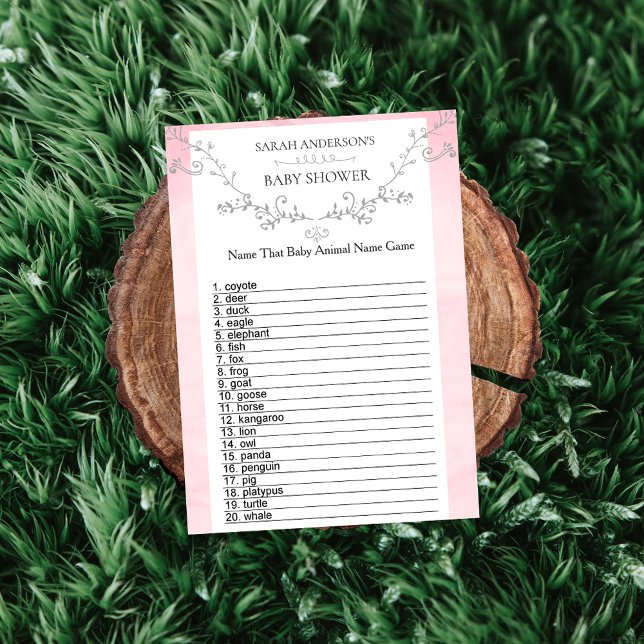 SARAH ANDERSON'S
BABY SHOWER
Name That Baby Animal Name Game
1. coyote
2. deer
3. duck
4. eagle
5. elephant
6. fish
7. fox
8. frog
9. goat
10. goose
11. horse
12. kangaroo
13. lion
14. owl
15. panda
16. penguin
17. pig
18. platypus
19. turtle
20. whale